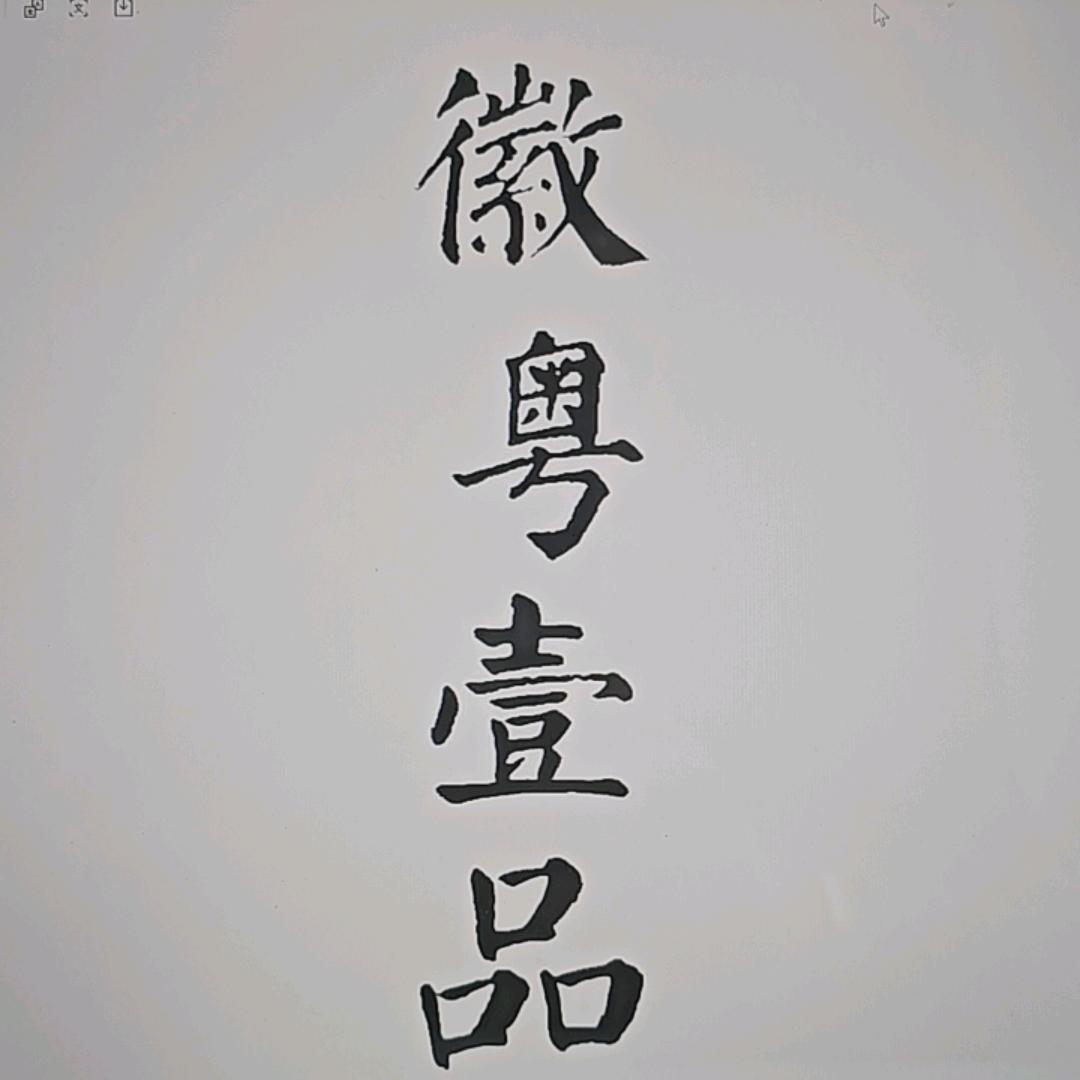 徽粤壹品